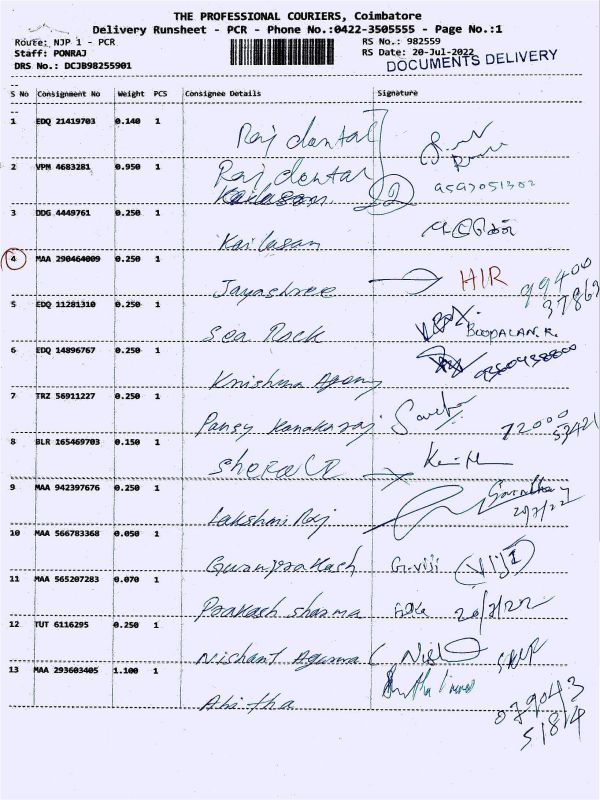 THE PROFESSIONAL COURIERS, Coimbatore
Delivery Runsheet - PCR - Phone No.:0422-3505555 - Page No.:1
Route: NJP 1 - PCR RS No.: 982559
Staff: PONRAJ RS Date: 20-Jul-2022
DRS No.: DCJB98255901 DOCUMENTS DELIVERY
S No Consignment No Weight PCS Consignee Details Signature
1 EDQ 21419703 0.140 1 Raj dental
2 VPM 4683281 0.950 1 Raj dental
3 DDG 4449761 0.250 1 Kailasam
4 MAA 290464009 0.250 1 Jayashree HIR
5 EDQ 11281310 0.250 1 Sea Rock BOOPALAN.R.
6 EDQ 14896767 0.250 1 Krishna Agency
7 TRZ 56911227 0.250 1 Pansy Kanakaraj
8 BLR 165469703 0.150 1
9 MAA 942397676 0.250 1 Lakshmi Raj 20/7/22
10 MAA 566783368 0.050 1 Guruprakash G.viji VIJI
11 MAA 565207283 0.070 1 Prakash sharma 20/7/22
12 TUT 6116295 0.250 1 Nishant
13 MAA 293603405 1.100 1